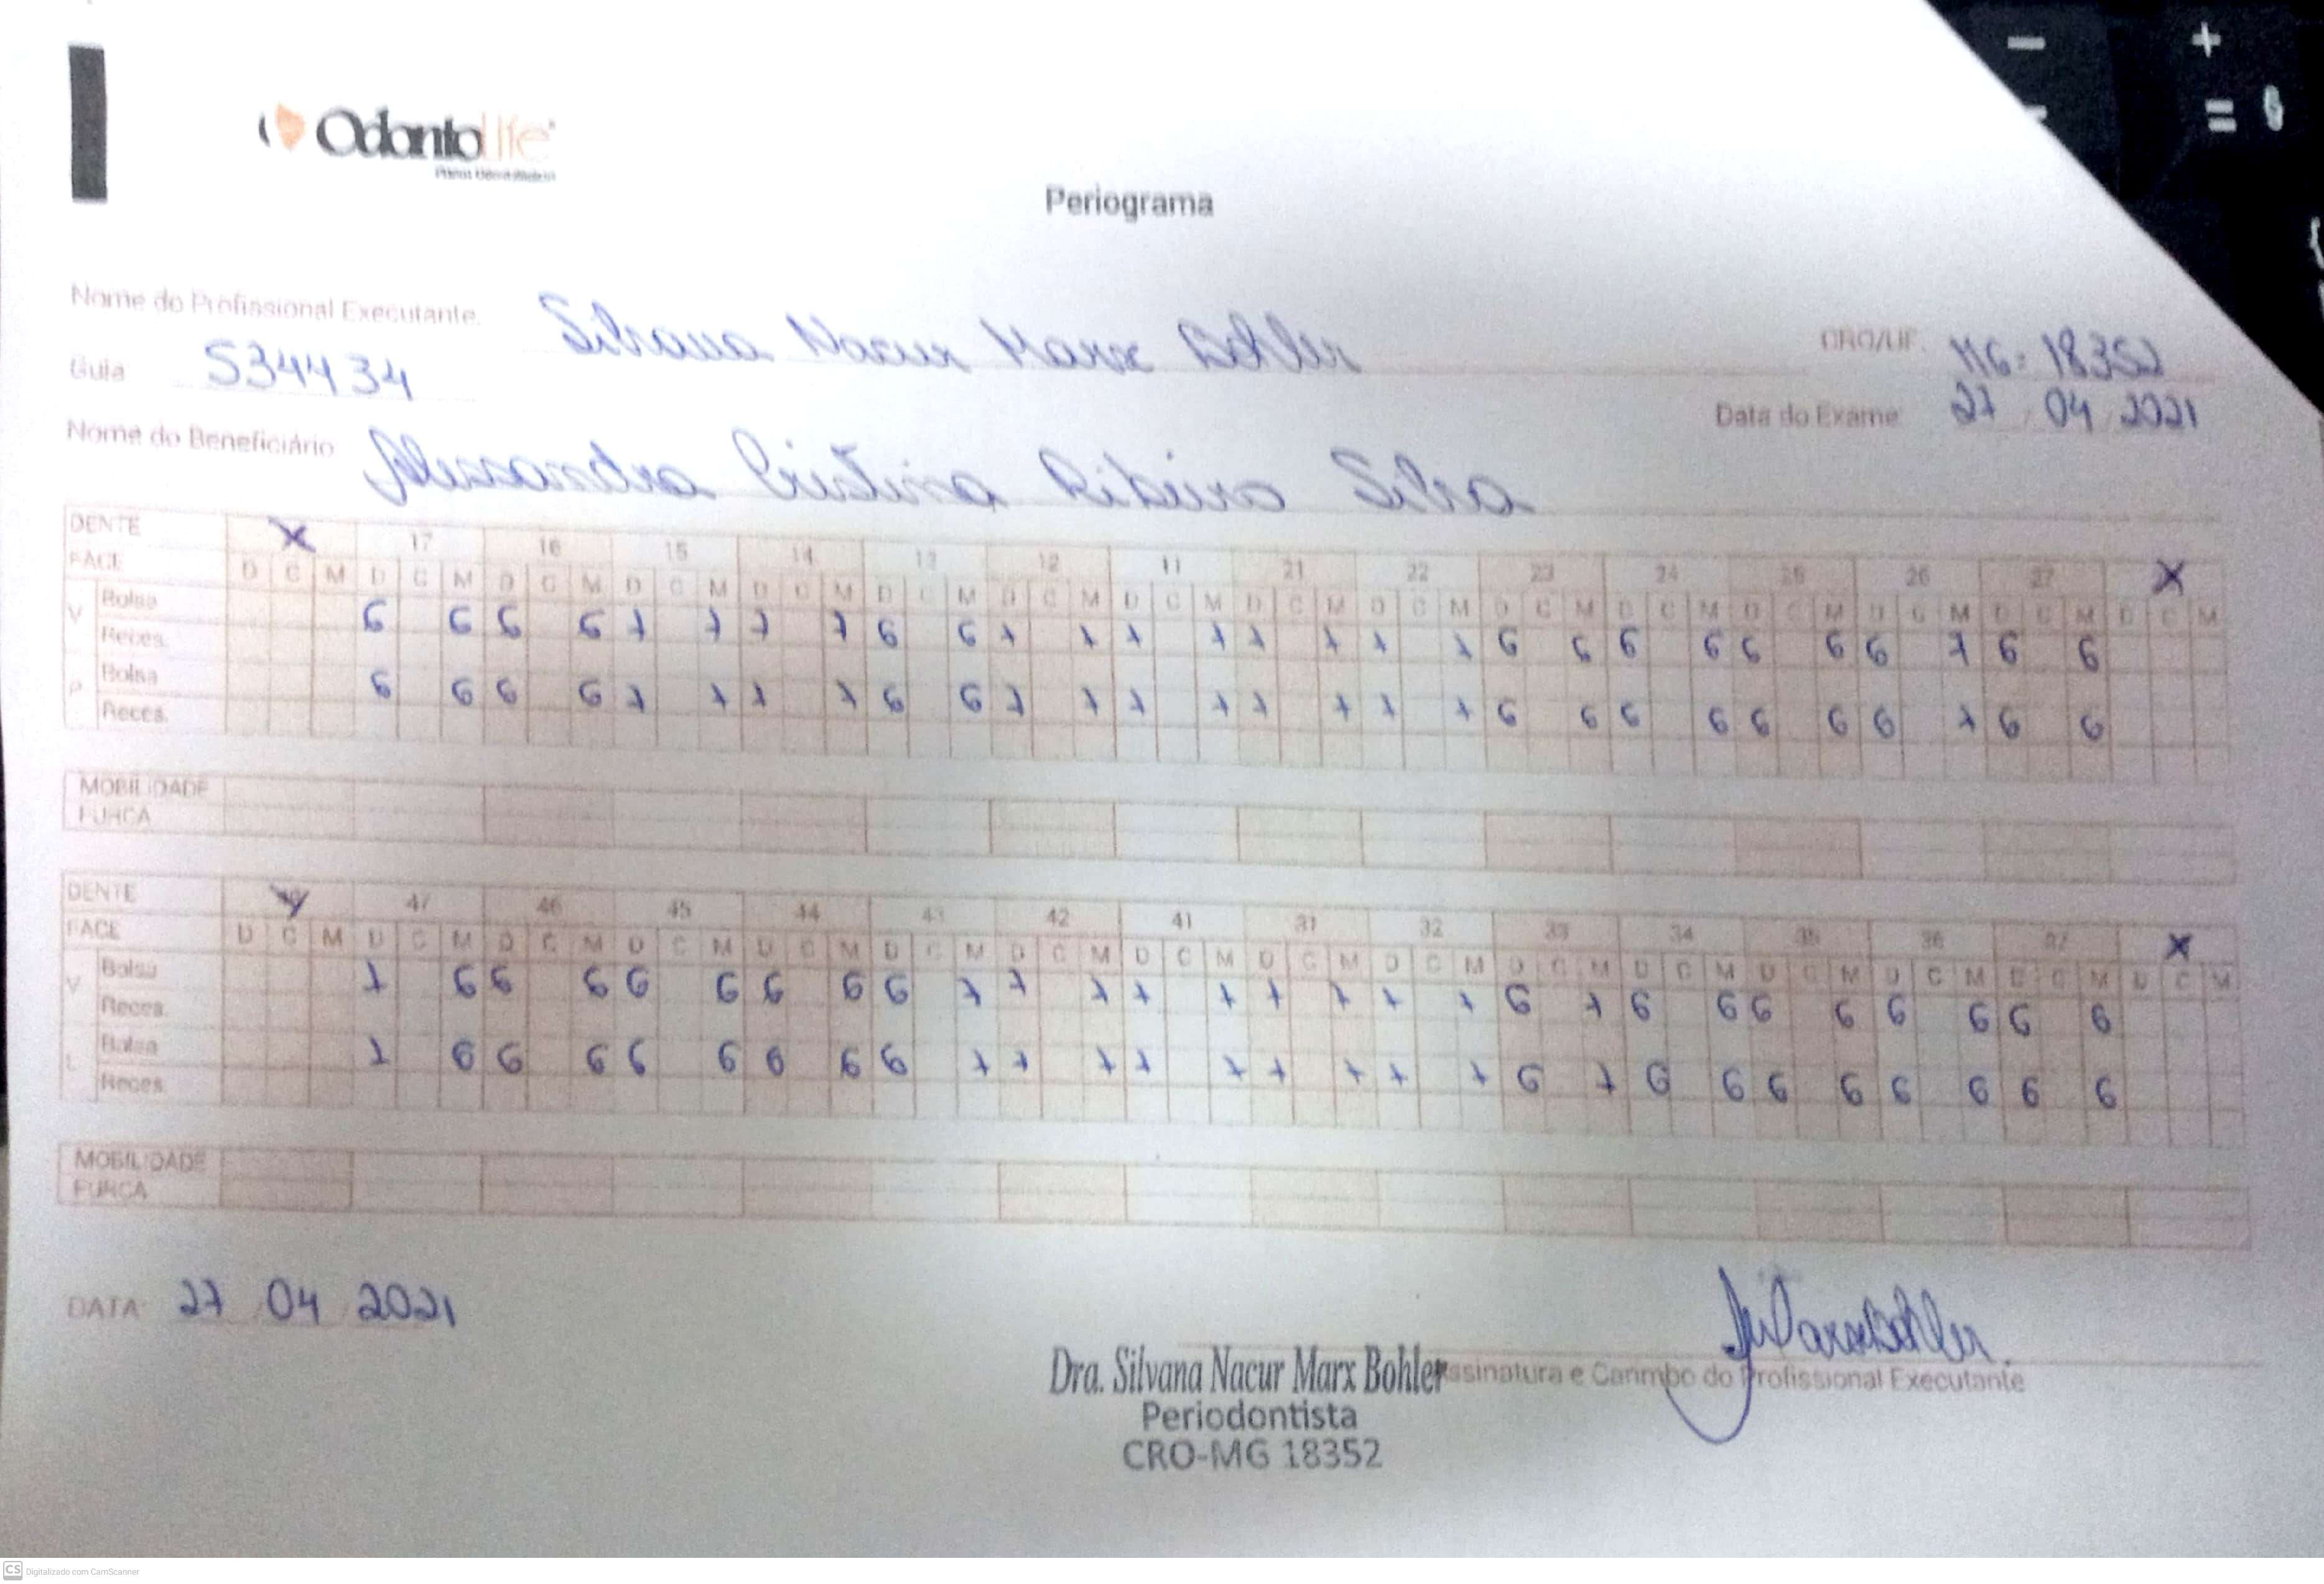 OdontoLife
Periograma
Nome do Profissional Executante: Silvana Nacur Marx Bohler CRO/UF: MG: 18352
Guia 534434 Data do Exame 27 04 2021
Nome do Beneficiário Alessandra Cristina Ribeiro Silva
DENTE X 17 16 15 14 13 12 11 21 22 23 24 25 26 27 X
FACE D C M D C M D C M D C M D C M D C M D C M D C M D C M D C M D C M D C M D C M D C M D C M D C M
V Bolsa 6 6 6 6 7 7 7 7 6 6 7 7 7 7 7 7 7 7 6 6 6 6 6 6 6 7 6 6
Reces.
P Bolsa 6 6 6 6 7 7 7 7 6 6 7 7 7 7 7 7 7 7 6 6 6 6 6 6 6 7 6 6
Reces.
MOBILIDADE
FURCA
DENTE X 47 46 45 44 43 42 41 31 32 33 34 35 36 37 X
FACE D C M D C M D C M D C M D C M D C M D C M D C M D C M D C M D C M D C M D C M D C M D C M D C M
V Bolsa 7 6 6 6 6 6 6 6 6 7 7 7 7 7 7 7 7 7 6 7 6 6 6 6 6 6 6 6
Reces.
L Bolsa 7 6 6 6 6 6 6 6 6 7 7 7 7 7 7 7 7 7 6 7 6 6 6 6 6 6 6 6
Reces.
MOBILIDADE
FURCA
DATA: 27 04 2021
Assinatura e Carimbo do Profissional Executante
Dra. Silvana Nacur Marx Bohler
Periodontista
CRO-MG 18352
CS Digitalizado com CamScanner